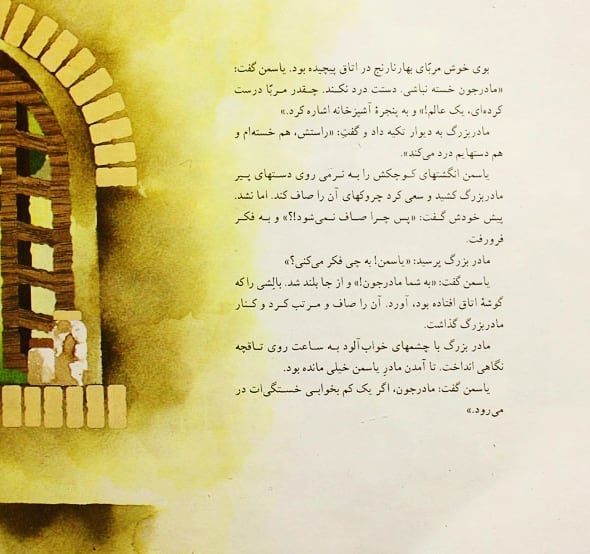 بوی خوش مربّای بهارنارنج در اتاق پیچیده بود. یاسمن گفت:
«مادرجون خسته نباشی. دستت درد نکند. چقدر مربّا درست
کرده‌ای، یک عالم!» و به پنجرهٔ آشپزخانه اشاره کرد.»
مادربزرگ به دیوار تکیه داد و گفت: «راستش، هم خسته‌ام و
هم دستهایم درد می‌کند».
یاسمن انگشتهای کوچکش را به نرمی روی دستهای پیر
مادربزرگ کشید و سعی کرد چروکهای آن را صاف کند. اما نشد.
پیش خودش گفت: «پس چرا صاف نمی‌شود!؟» و به فکر
فرورفت.
مادر بزرگ پرسید: «یاسمن! به چی فکر می‌کنی؟»
یاسمن گفت: «به شما مادرجون!» و از جا بلند شد. بالِشی را که
گوشهٔ اتاق افتاده بود، آورد. آن را صاف و مرتب کرد و کنار
مادربزرگ گذاشت.
مادر بزرگ با چشمهای خواب‌آلود به ساعت روی تاقچه
نگاهی انداخت. تا آمدن مادرِ یاسمن خیلی مانده بود.
یاسمن گفت: مادرجون، اگر یک کم بخوابی خستگی‌ات در
می‌رود.»